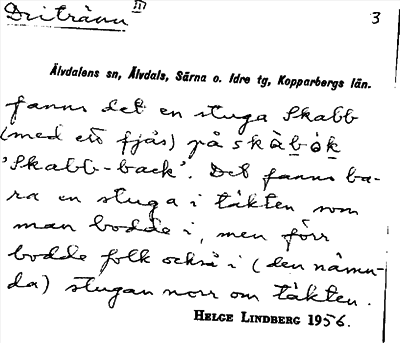 Dritränn III
3
Älvdalens sn, Älvdals, Särna o. Idre tg, Kopparbergs län.
fanns det en stuga Skabb
(med ett fjås) på skàbàk
'Skabb-back'. Det fanns ba-
ra en stuga i täkten som
man bodde i, men förr
bodde folk också i (den nämn-
da) stugan norr om täkten.
HELGE LINDBERG 1956.